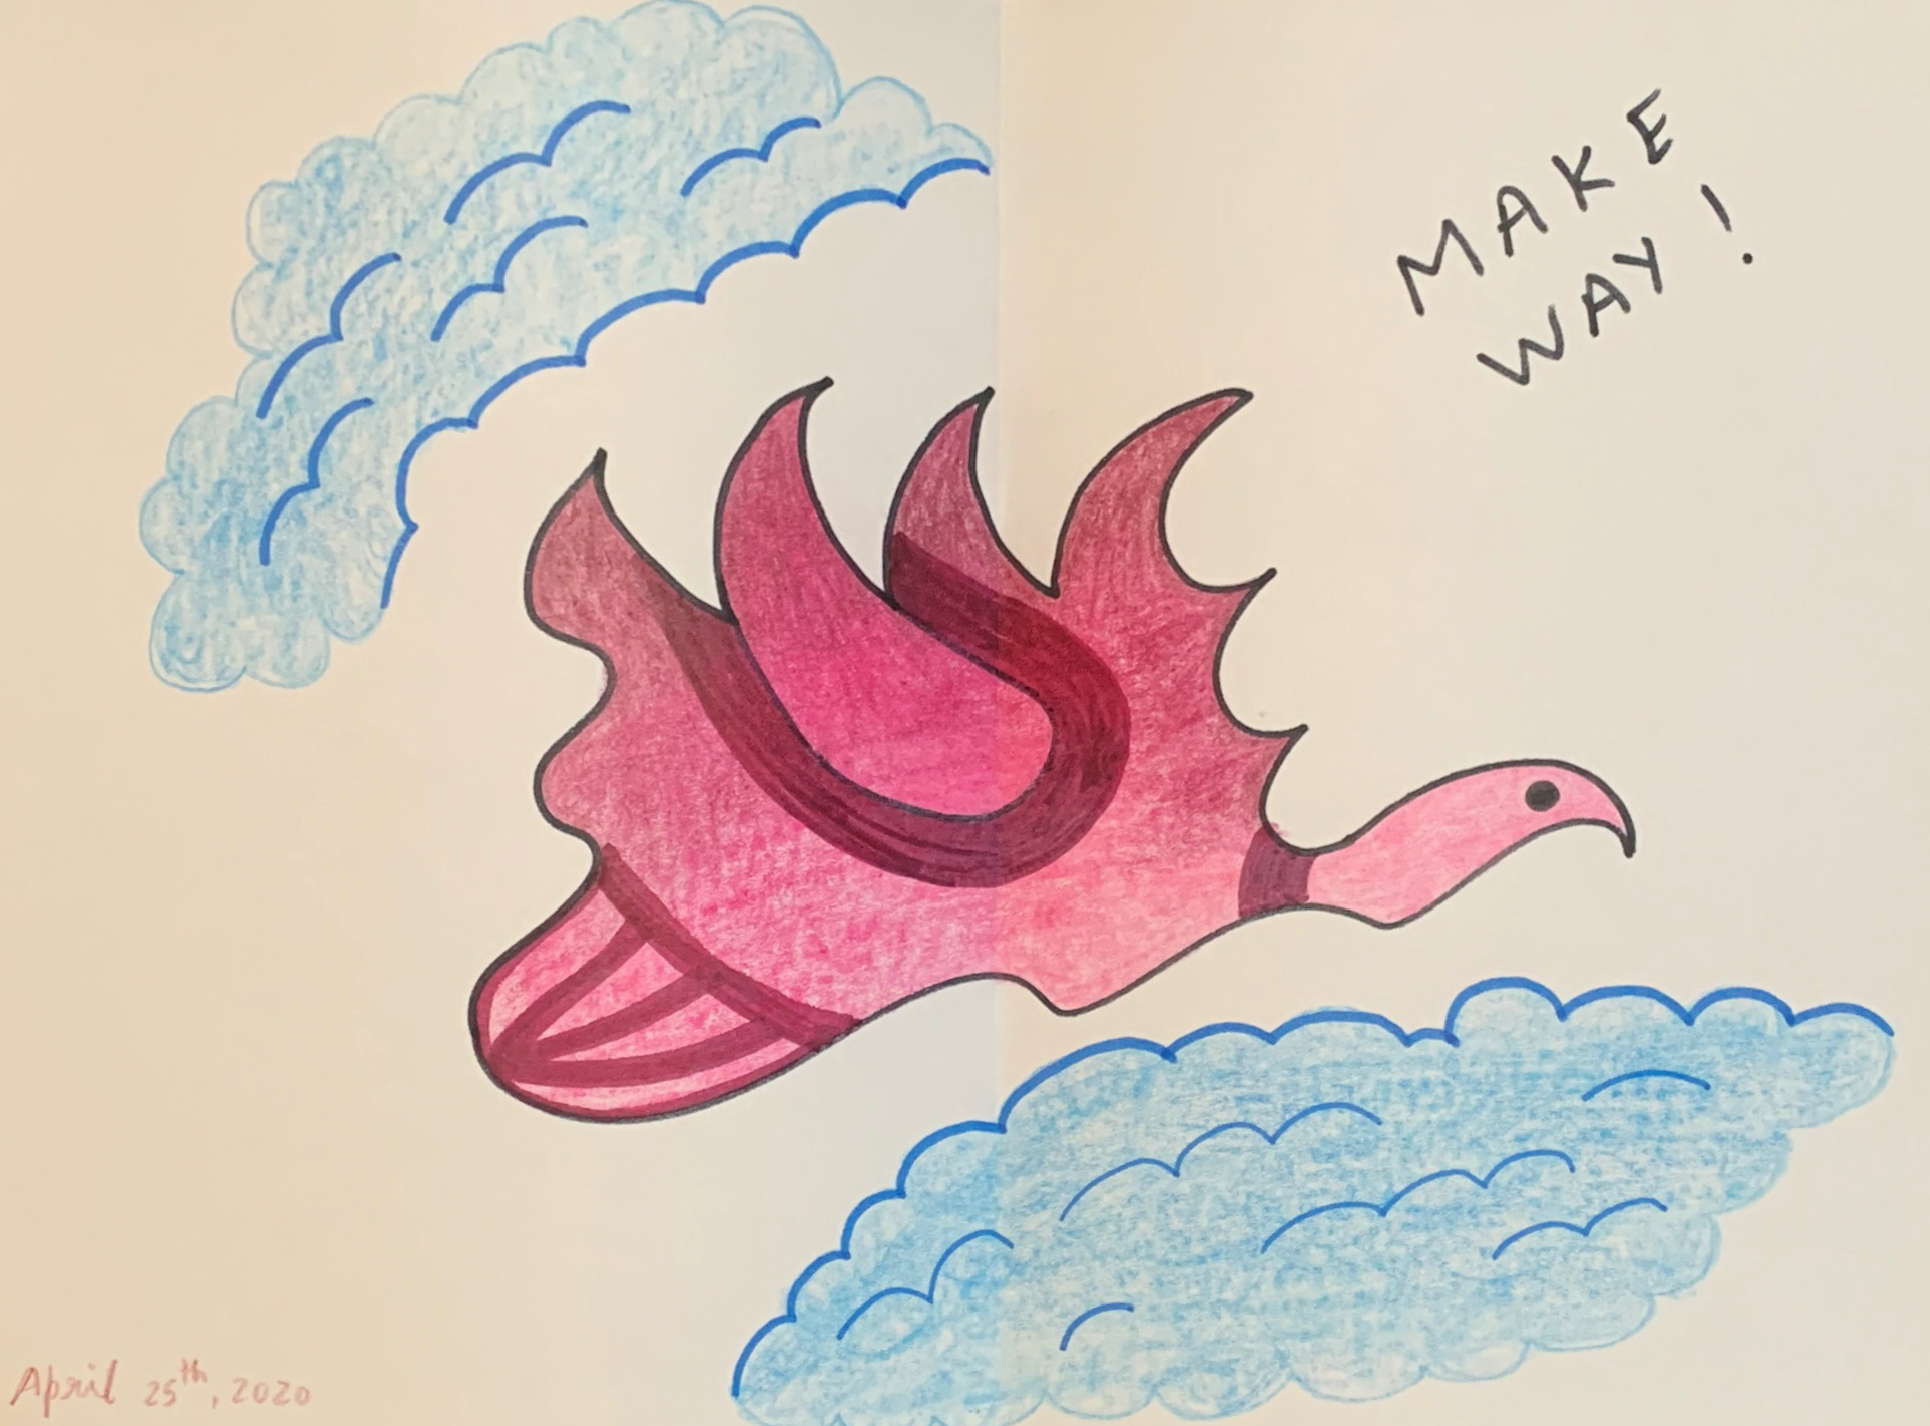 MAKE
WAY!
April 25th, 2020